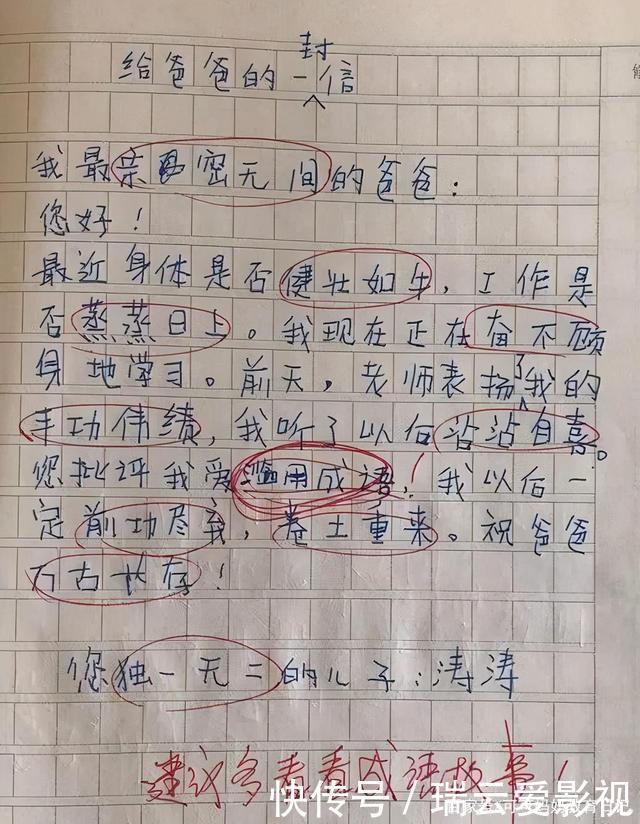 封
给爸爸的一信
我最亲密无间的爸爸：
您好！
最近身体是否健壮如牛，工作是
否蒸蒸日上。我现在正在奋不顾
身地学习。前天，老师表扬了我的
丰功伟绩，我听了以后沾沾自喜。
您批评我爱滥用成语！我以后一
定前功尽弃，卷土重来。祝爸爸
万古长存！
您独一无二的儿子：涛涛
建议多看看成语故事！
快传号/瑞云爱影视